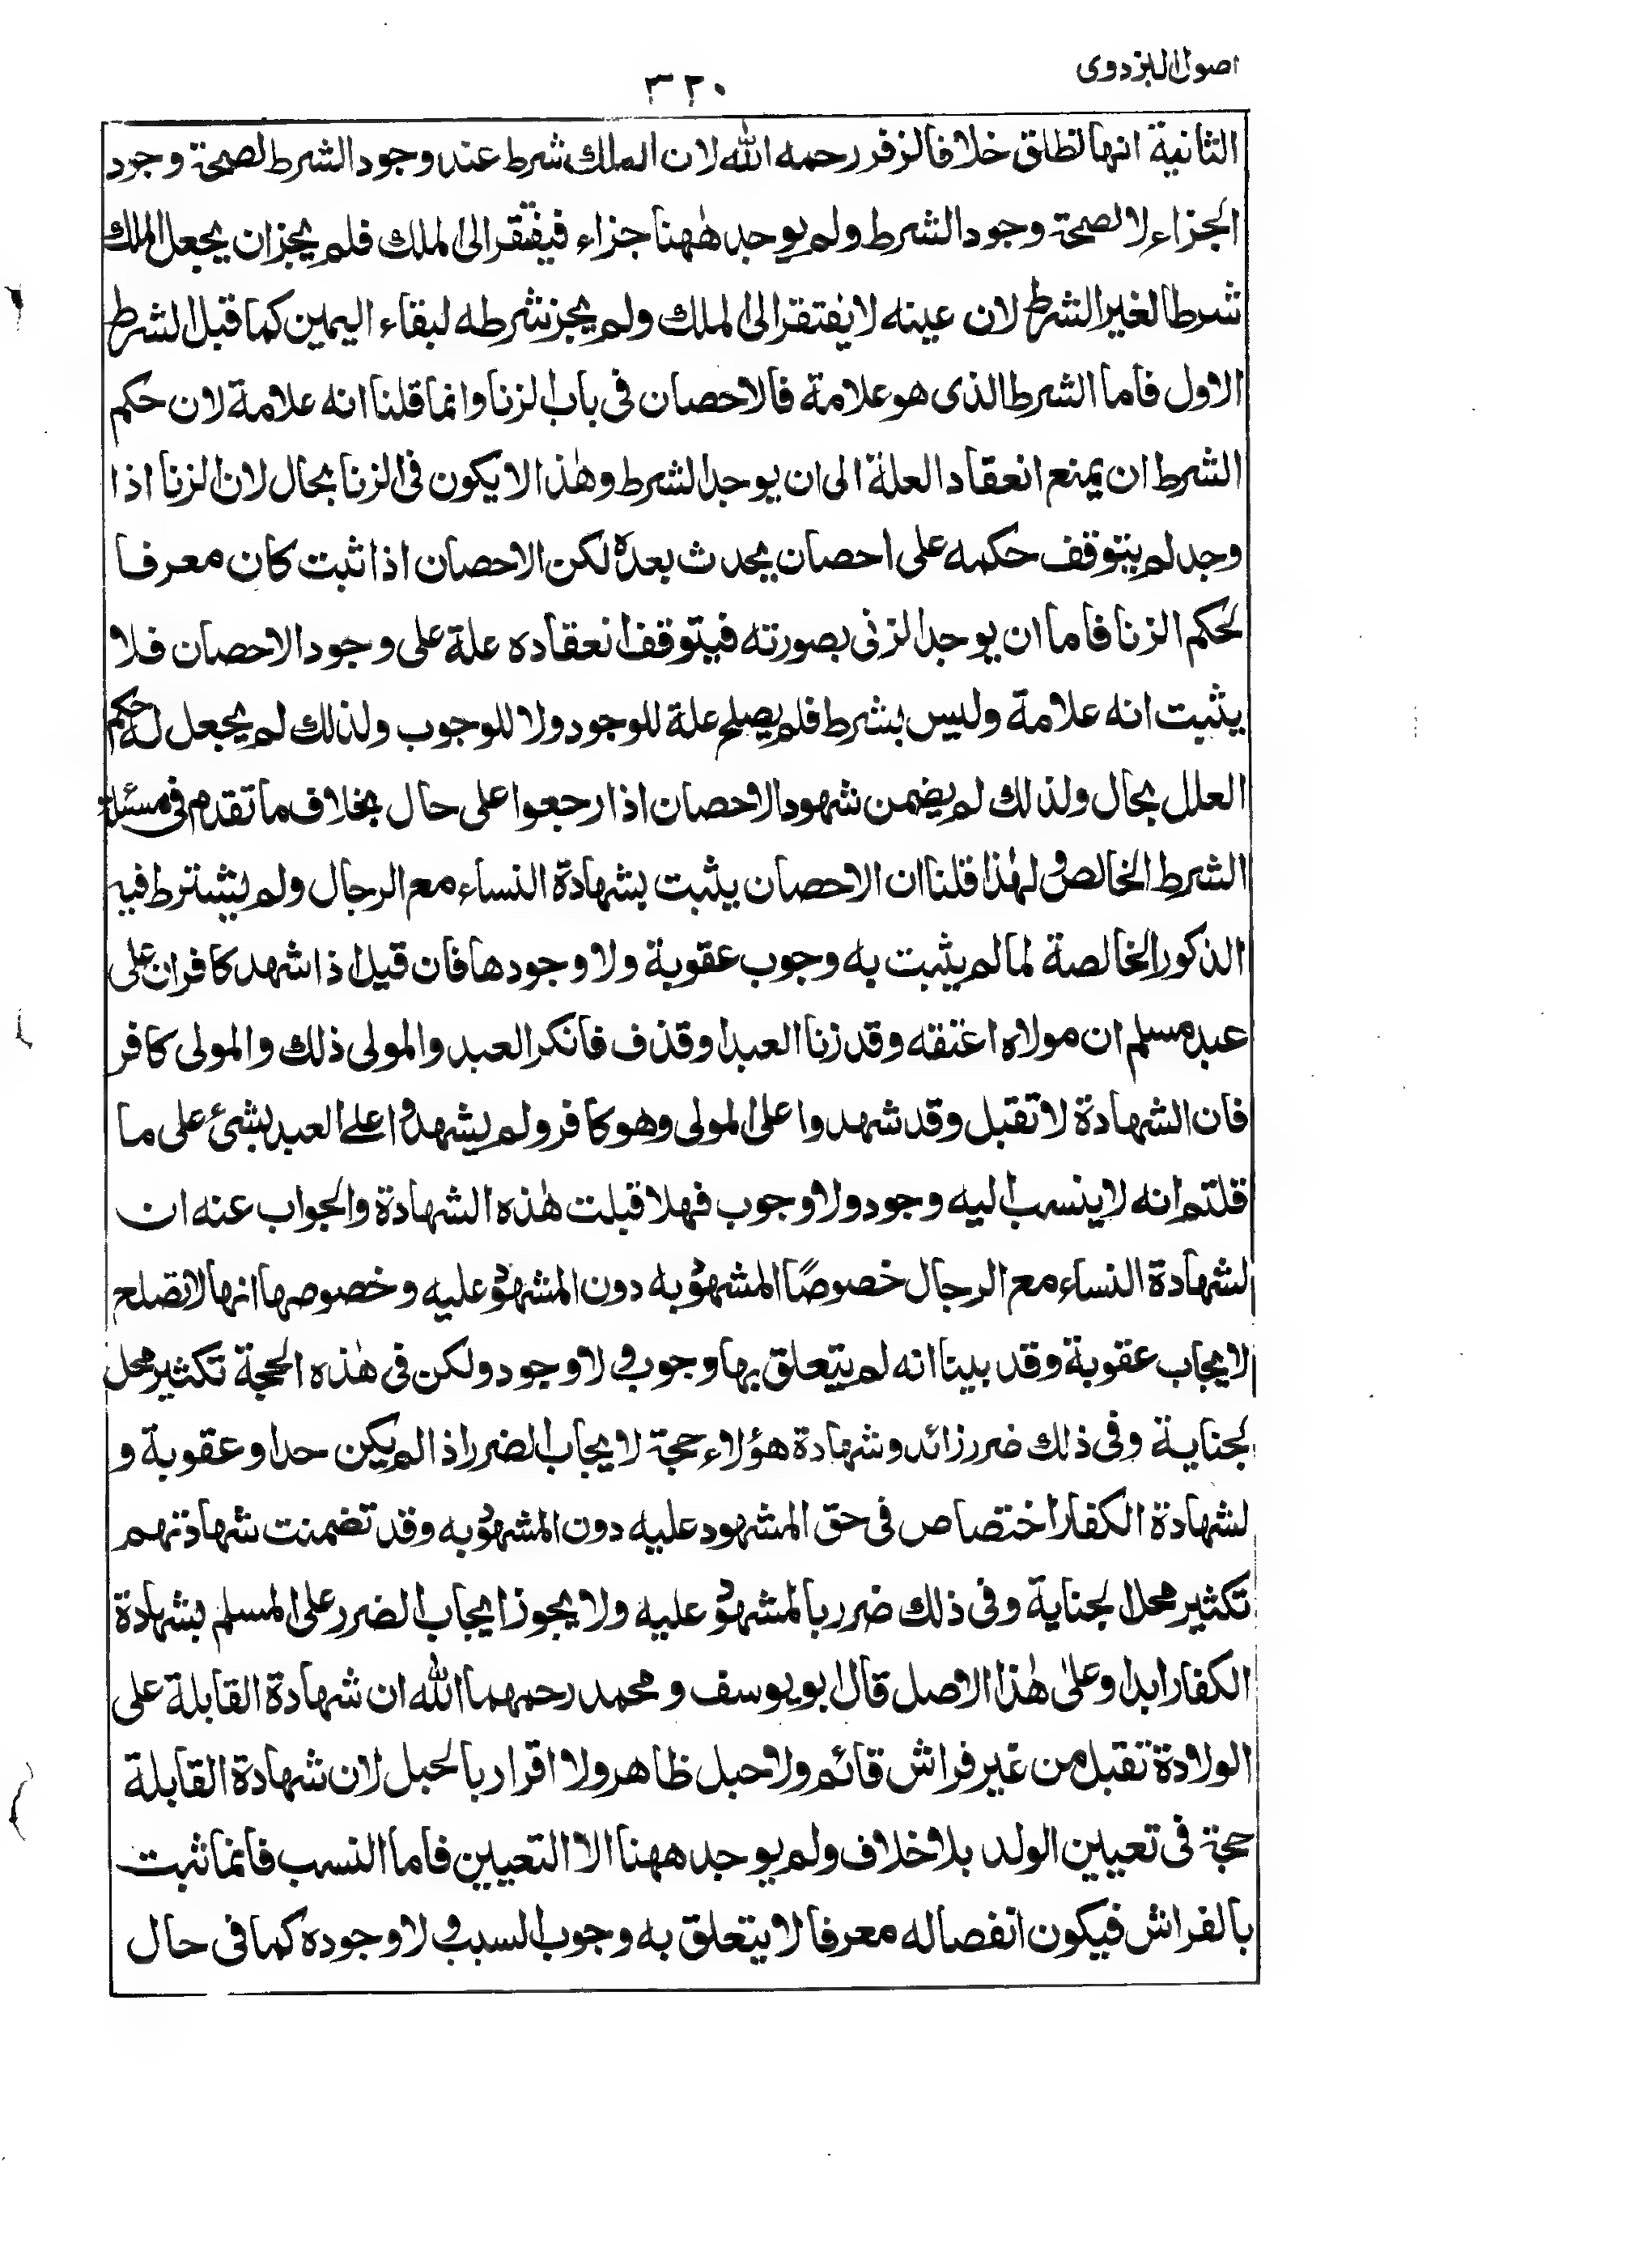 اصول البزدوی
۳۲۰
الثانية انها تطلق خلافا لزفر رحمه الله لان الملك شرط عند وجود الشرط لصحة وجود
الجزاء لا لصحة وجود الشرط ولم يوجد ههنا جزاء فيفتقر الى الملك فلم يجز ان يجعل الملك
شرطا لغير الشرط لان عينه لا يفتقر الى الملك ولم يجز شرطه لبقاء اليمين كما قبل الشرط
الاول فاما الشرط الذى هو علامة فالاحصان فى باب الزنا وانما قلنا انه علامة لان حكم
الشرط ان يمنع انعقاد العلة الى ان يوجد الشرط وهذا لا يكون فى الزنا بحال لان الزنا اذا
وجد لم يتوقف حكمه على احصان يحدث بعده لكن الاحصان اذا ثبت كان معرفا
لحكم الزنا فاما ان يوجد الزنى بصورته فيتوقف انعقاده علة على وجود الاحصان فلا
يثبت انه علامة وليس بشرط فلم يصلح علة للوجود ولا للوجوب ولذلك لم يجعل له حكم
العلل بحال ولذلك لم يضمن شهود الاحصان اذا رجعوا على حال بخلاف ما تقدم فى مسئلة
الشرط الخالص ولهذا قلنا ان الاحصان يثبت بشهادة النساء مع الرجال ولم يشترط فيه
الذكور الخالصة لما لم يثبت به وجوب عقوبة ولا وجودها فان قيل اذا شهد كافران على
عبد مسلم ان مولاه اعتقه وقد زنا العبد او قذف فانكر العبد والمولى ذلك والمولى كافر
فان الشهادة لا تقبل وقد شهدوا على المولى وهو كافر ولم يشهدوا على العبد بشئ على ما
قلتم انه لا ينسب اليه وجود ولا وجوب فهلا قبلت هذه الشهادة والجواب عنه ان
لشهادة النساء مع الرجال خصوصًا المشهود به دون المشهود عليه وخصوصها انها لا تصلح
لايجاب عقوبة وقد بينا انه لم يتعلق بها وجوب ولا وجود ولكن فى هذه الحجة تكثير محل
لجناية وفى ذلك ضرر زائد وشهادة هؤلاء حجة لايجاب الضرر اذا لم يكن حدا وعقوبة و
لشهادة الكفار اختصاص فى حق المشهود عليه دون المشهود به وقد تضمنت شهادتهم
تكثير محل الجناية وفى ذلك ضرر بالمشهود عليه ولا يجوز ايجاب الضرر على المسلم بشهادة
الكفار ابدا وعلى هذا الاصل قال ابو يوسف و محمد رحمهما الله ان شهادة القابلة على
الولادة تقبل من غير فراش قائم ولا حبل ظاهر ولا اقرار بالحبل لان شهادة القابلة
حجة فى تعيين الولد بلا خلاف ولم يوجد ههنا الا التعيين فاما النسب فانما ثبت
بالفراش فيكون انفصاله معرفا لا يتعلق به وجوب السبب ولا وجوده كما فى حال